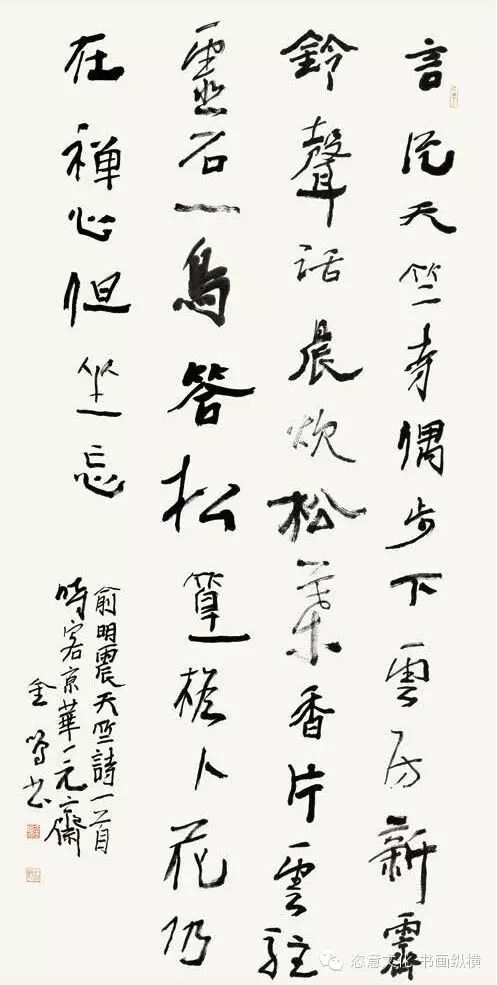 言天竺寺偶步下雲房新霽
鈴聲話晨炊松葉香片雲駐
靈石一鳥答松篁檐卜花仍
在禅心但坐忘
俞明震天竺詩一首
時客京華一元齋
金鳴书
恣意文化 书画纵横